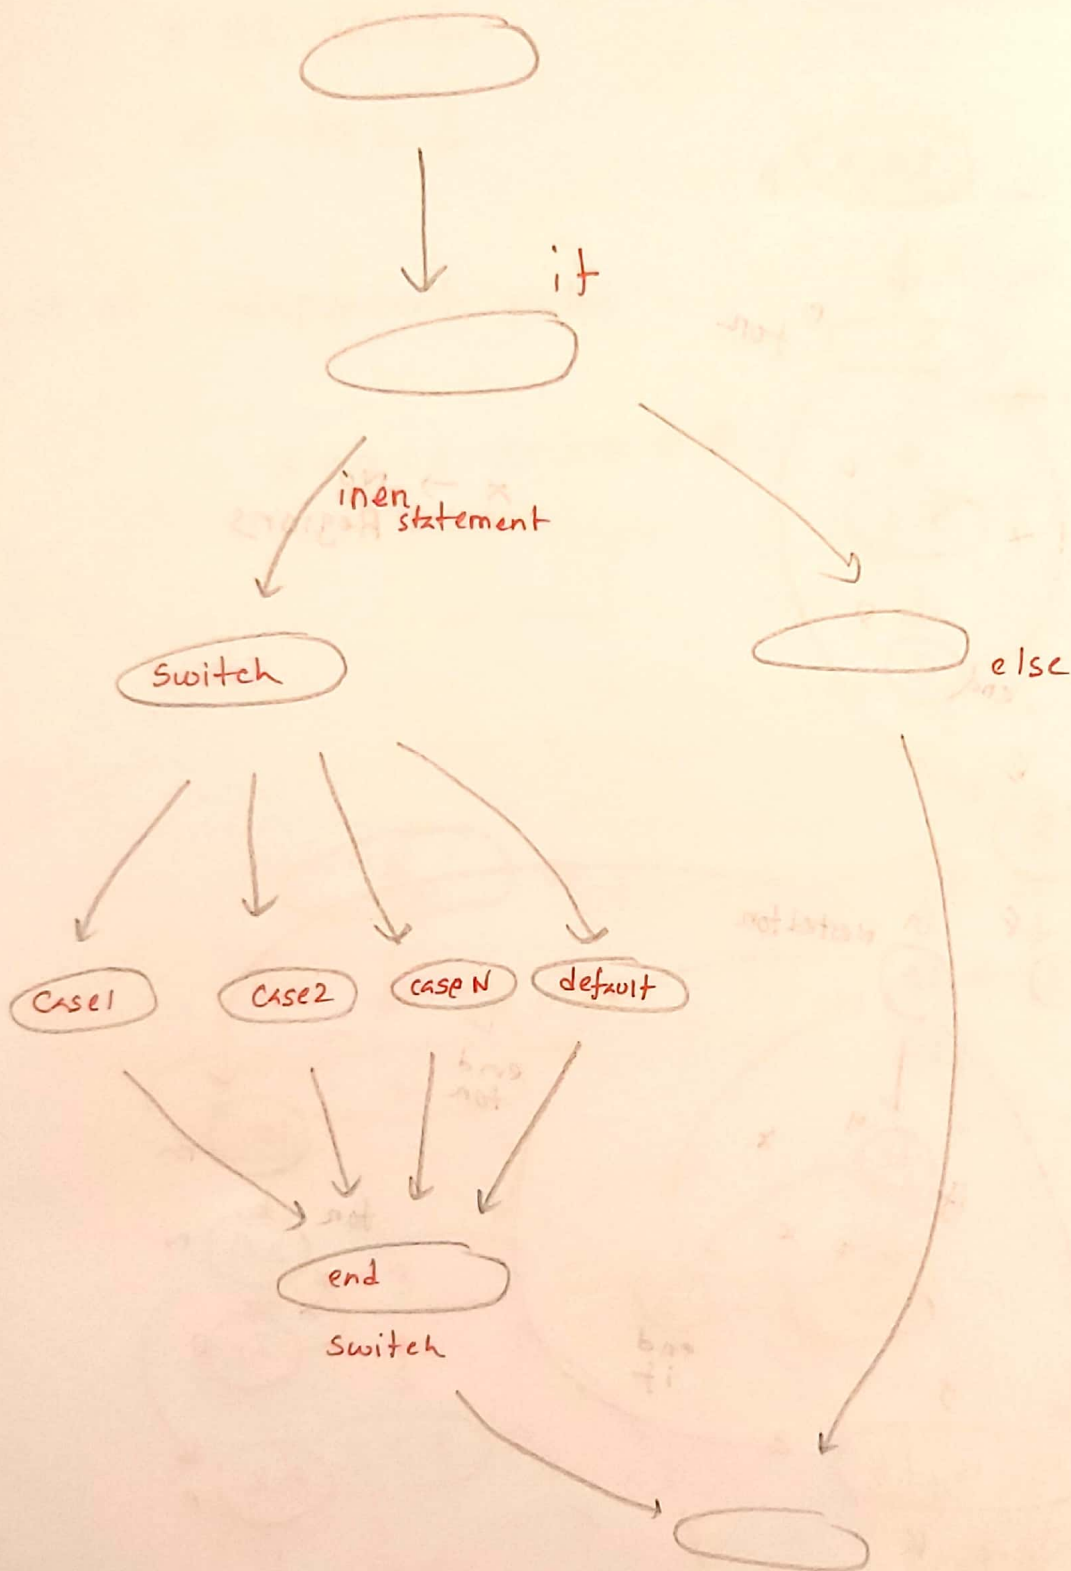 if
inen
statement
switch
else
case1
case2
case N
default
end
switch